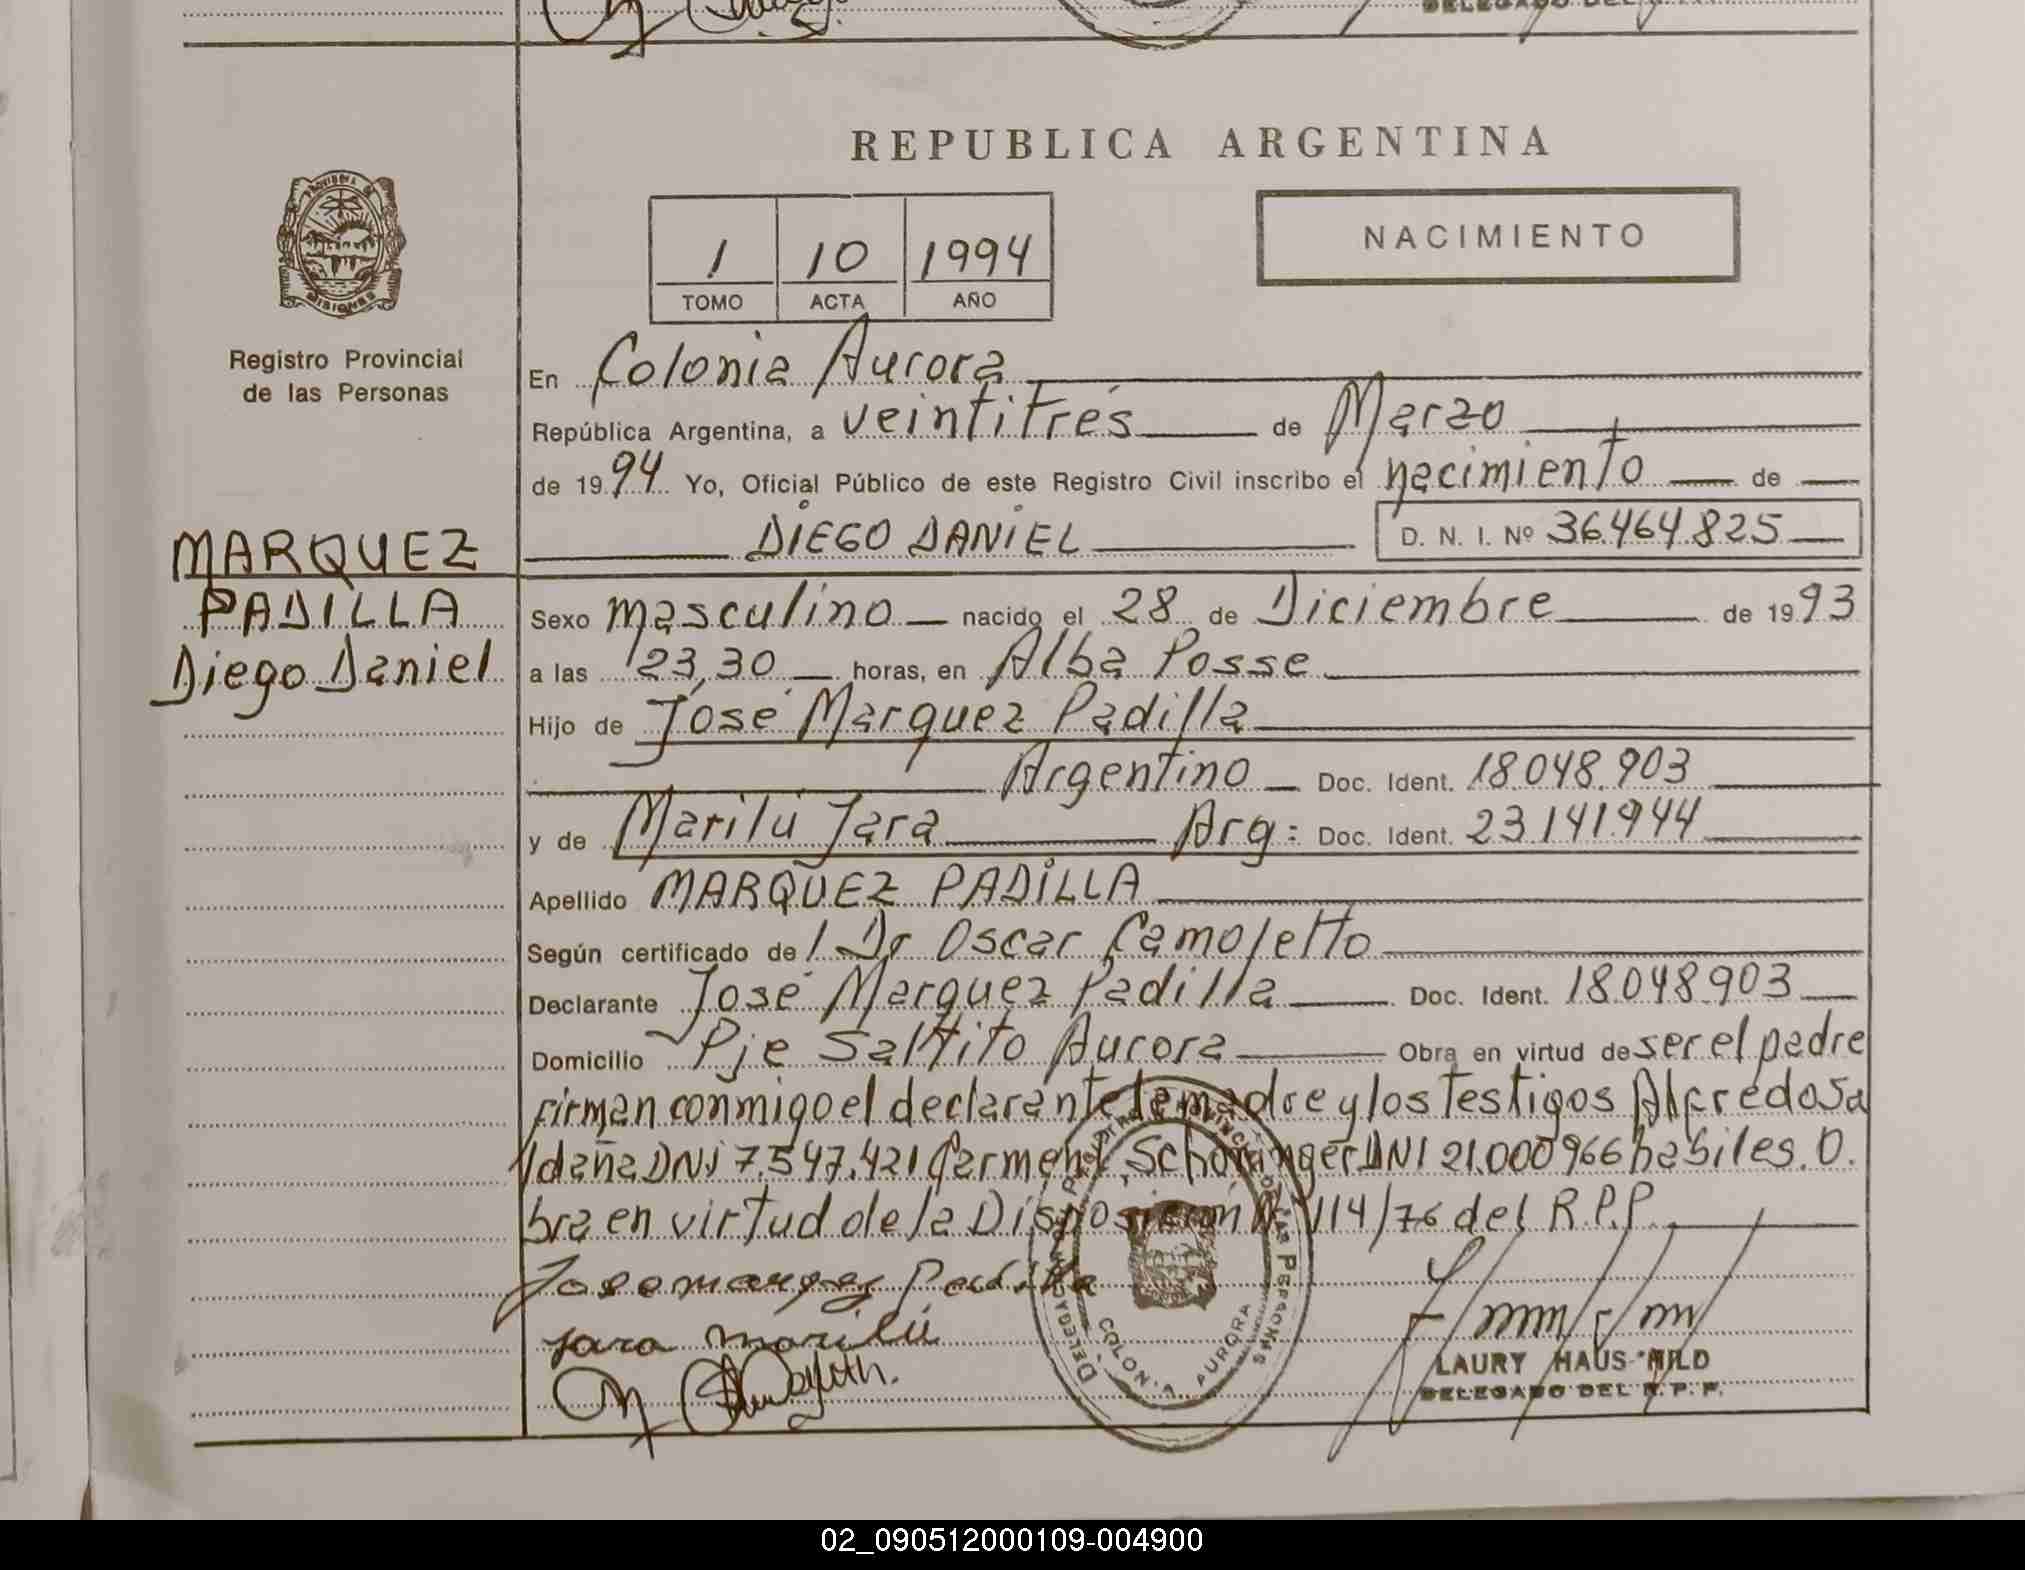 DELEGADO DEL
REPUBLICA ARGENTINA
PROVINCIA DE
MISIONES
1 10 1994
TOMO ACTA AÑO
NACIMIENTO
Registro Provincial
de las Personas
En Colonia Aurora
República Argentina, a veintitrés de Marzo
de 1994 Yo, Oficial Público de este Registro Civil inscribo el nacimiento de
DIEGO DANIEL D. N. I. Nº 36.464.825
MARQUEZ
PADILLA
Diego Daniel
Sexo masculino nacido el 28 de Diciembre de 1993
a las 23,30 horas, en Alba Posse
Hijo de José Marquez Padilla
Argentino Doc. Ident. 18.048.903
y de Marilú Jara Arg: Doc. Ident. 23.141.944
Apellido MARQUEZ PADILLA
Según certificado de / Dr Oscar Camoletto
Declarante José Marquez Padilla Doc. Ident. 18.048.903
Domicilio Pje Saltito Aurora Obra en virtud de ser el padre
firman conmigo el declarante la madre y los testigos Alfredo Sa
ldaña DNI 7.547.421 Carmen DNI 21.000966 habiles. O.
bra en virtud de la Disposición Nº 114/76 del R.P.P.
Jose marquez Padilla
jara marilú
DELEGACION COLONIA AURORA
LAURY HAUS HILD
DELEGADO DEL R. P. P.
02_090512000109-004900